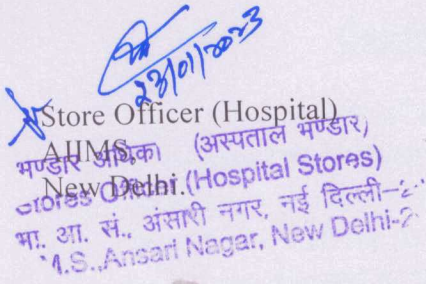 23/01/2023
Store Officer (Hospital)
AIIMS,
New Delhi.
भण्डार (अस्पताल भण्डार)
Stores Officer (Hospital Stores)
भा. आ. सं., अंसारी नगर, नई दिल्ली-2
M.S., Ansari Nagar, New Delhi-2